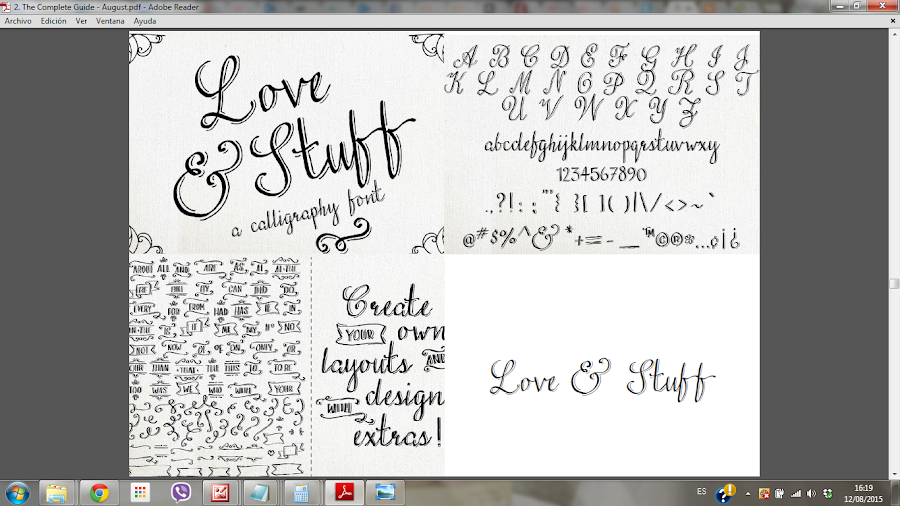 2. The Complete Guide - August.pdf - Adobe Reader
Archivo Edición Ver Ventana Ayuda
Love
& Stuff
a calligraphy font
A B C D E F G H I J
K L M N O P Q R S T
U V W X Y Z
abcdefghijklmnopqrstuvwxy
1234567890
@#$%^&*+=-_™©®
ABOUT ALL AND ARE AS AT AT THE
BE BUT BY CAN DID DO
EVERY FOR FROM HAD HAS IF IN
IN THE IS IT ME MY Nº NO
NOT NOW OF OF ON ONLY OR
OUR THAN THAT THE THIS TO TO BE
TOO WAS WE WHO WITH YOUR
Create
YOUR own
layouts AND
design
WITH
extras!
Love & Stuff
ES
16:19
12/08/2015